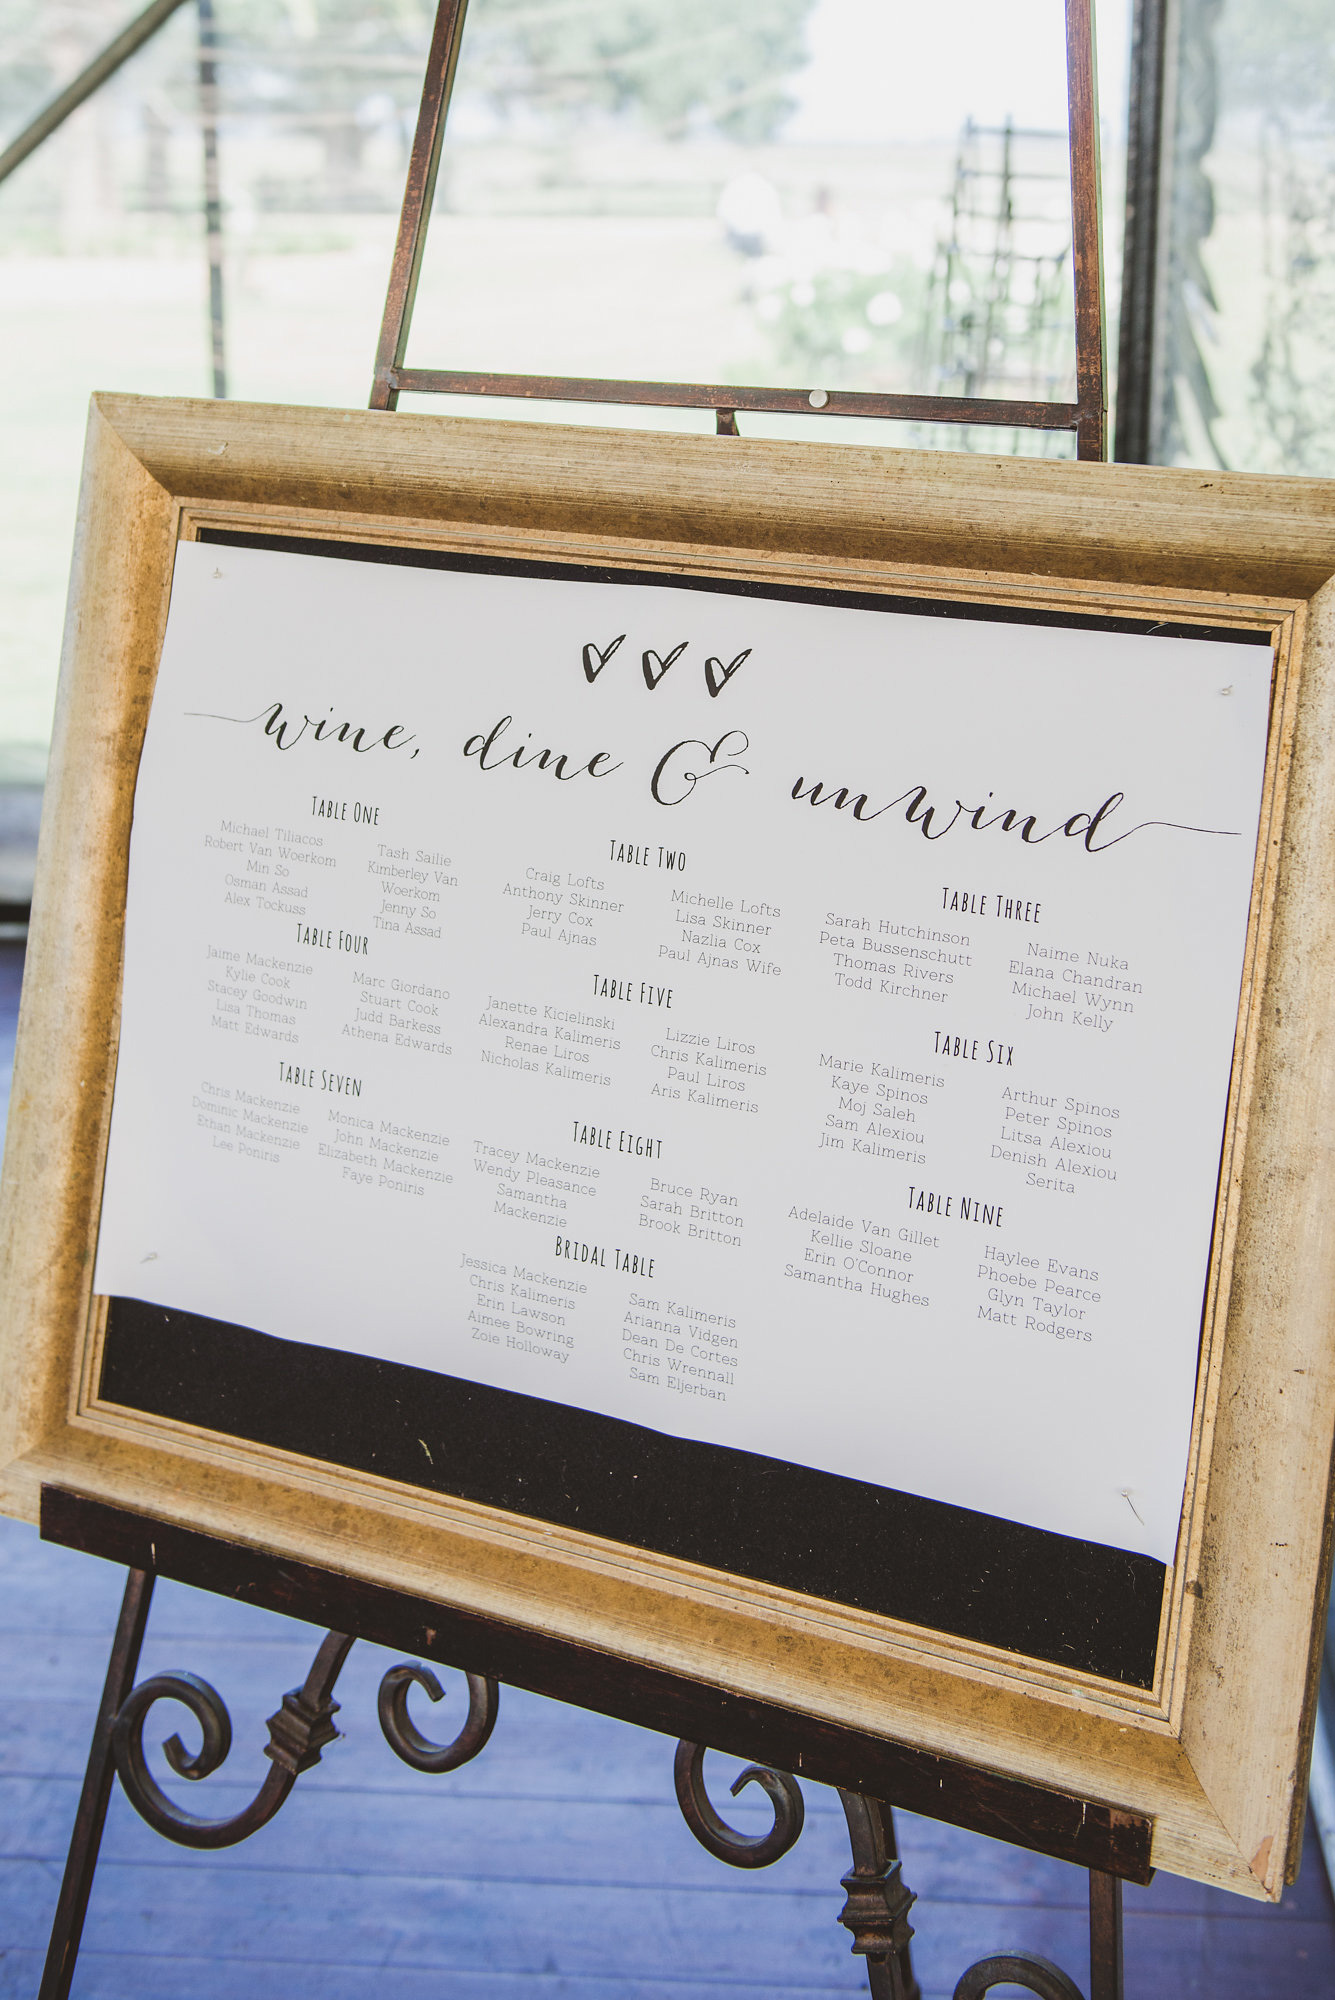 wine, dine & unwind
Table One
Michael Tiliacos
Robert Van Woerkom
Min So
Osman Assad
Alex Tockuss
Tash Sailie
Kimberley Van
Woerkom
Jenny So
Tina Assad
Table Two
Craig Lofts
Anthony Skinner
Jerry Cox
Paul Ajnas
Michelle Lofts
Lisa Skinner
Nazlia Cox
Paul Ajnas Wife
Table Three
Sarah Hutchinson
Peta Bussenschutt
Thomas Rivers
Todd Kirchner
Naime Nuka
Elana Chandran
Michael Wynn
John Kelly
Table Four
Jaime Mackenzie
Kylie Cook
Stacey Goodwin
Lisa Thomas
Matt Edwards
Marc Giordano
Stuart Cook
Judd Barkess
Athena Edwards
Table Five
Janette Kicielinski
Alexandra Kalimeris
Renae Liros
Nicholas Kalimeris
Lizzie Liros
Chris Kalimeris
Paul Liros
Aris Kalimeris
Table Six
Marie Kalimeris
Kaye Spinos
Moj Saleh
Sam Alexiou
Jim Kalimeris
Arthur Spinos
Peter Spinos
Litsa Alexiou
Denish Alexiou
Serita
Table Seven
Chris Mackenzie
Dominic Mackenzie
Ethan Mackenzie
Lee Poniris
Monica Mackenzie
John Mackenzie
Elizabeth Mackenzie
Faye Poniris
Table Eight
Tracey Mackenzie
Wendy Pleasance
Samantha
Mackenzie
Bruce Ryan
Sarah Britton
Brook Britton
Table Nine
Adelaide Van Gillet
Kellie Sloane
Erin O'Connor
Samantha Hughes
Haylee Evans
Phoebe Pearce
Glyn Taylor
Matt Rodgers
Bridal Table
Jessica Mackenzie
Chris Kalimeris
Erin Lawson
Aimee Bowring
Zoie Holloway
Sam Kalimeris
Arianna Vidgen
Dean De Cortes
Chris Wrennall
Sam Eljerban